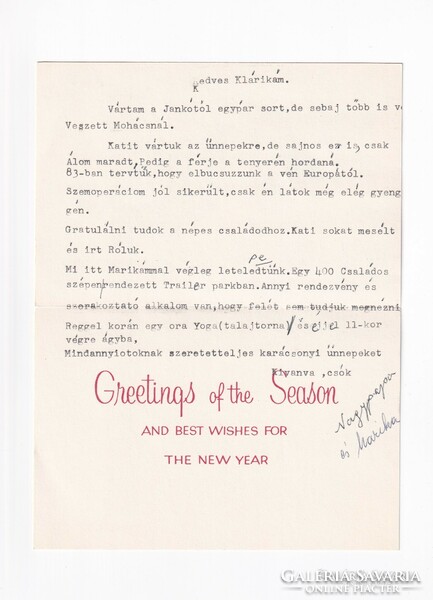 Kedves Klárikám.
Vártam a Jankótól egypár sort,de sebaj több is ve
Veszett Mohácsnál.
Katit vártuk az ünnepekre,de sajnos ez is csak
Álom maradt,Pedig a férje a tenyerén hordaná.
83-ban tervtük,hogy elbucsuzzunk a vén Európától.
Szemoperációm jól sikerült,csak én látok még elég gyeng
gén.
Gratulálni tudok a népes családodhoz.Kati sokat mesélt
és irt Róluk.
pe
Mi itt Marikámmal végleg leteledtünk.Egy 400 Családos
szépenrendezett Trailér parkban.Annyi rendezvény és
szorakoztató alkalom van,hogy felét sem tudjuk megnézni
Reggel korán egy ora Yoga(talajtorna) és éjjel 11-kor
végre ágyba,
Mindannyiotoknak szeretetteljes karácsonyi ünnepeket
kivanva ,csók
Nagypapa
és Marika
Greetings of the Season
AND BEST WISHES FOR
THE NEW YEAR
GALÉRIA SAVARIA
ONLINE PIACTÉR